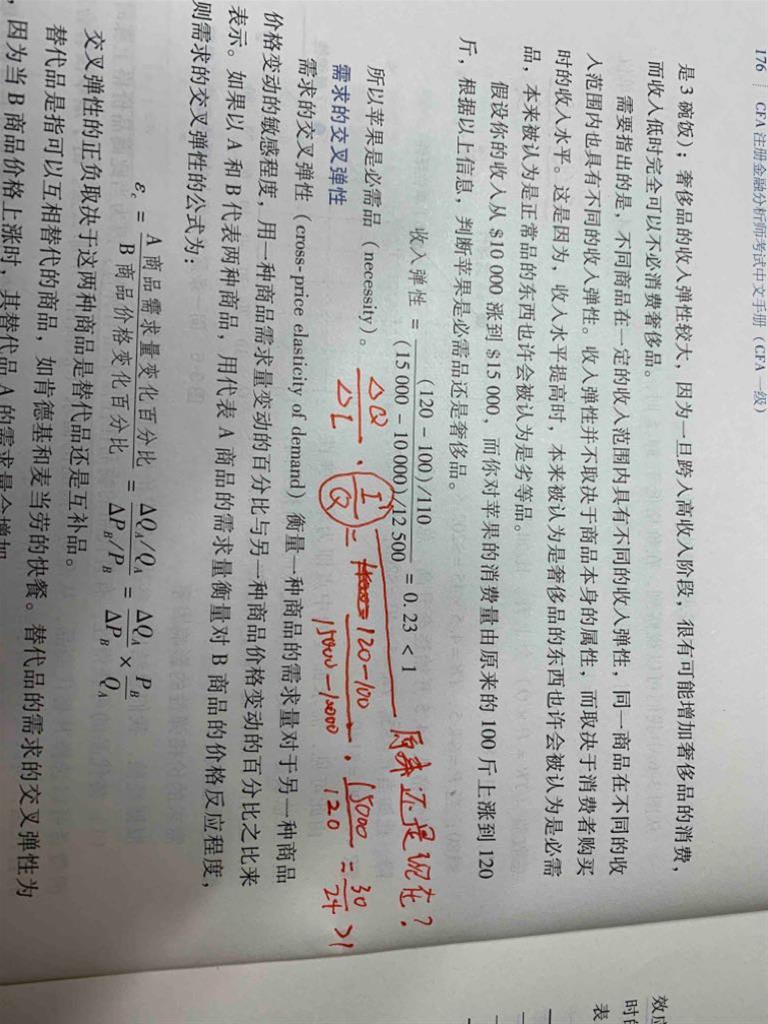 176 CFA 注册金融分析师考试中文手册（CFA 一级）
是 3 碗饭）；奢侈品的收入弹性较大，因为一旦跨入高收入阶段，很有可能增加奢侈品的消费，
而收入低时完全可以不必消费奢侈品。
需要指出的是，不同商品在一定的收入范围内具有不同的收入弹性，同一商品在不同的收
入范围内也具有不同的收入弹性。收入弹性并不取决于商品本身的属性，而取决于消费者购买
时的收入水平。这是因为，收入水平提高时，本来被认为是奢侈品的东西也许会被认为是必需
品，本来被认为是正常品的东西也许会被认为是劣等品。
假设你的收入从 $10 000 涨到 $15 000，而你对苹果的消费量由原来的 100 斤上涨到 120
斤，根据以上信息，判断苹果是必需品还是奢侈品。
收入弹性 = (120 - 100)/110 / (15 000 - 10 000)/12 500 = 0.23 < 1
原来还是现在？
所以苹果是必需品（necessity）。
ΔQ/ΔI · I/Q = 120-100 / 15000-10000 · 15000/120 = 30/24 >1
需求的交叉弹性
需求的交叉弹性（cross-price elasticity of demand）衡量一种商品的需求量对于另一种商品
价格变动的敏感程度，用一种商品需求量变动的百分比与另一种商品价格变动的百分比之比来
表示。如果以 A 和 B 代表两种商品，用代表 A 商品的需求量衡量对 B 商品的价格反应程度，
则需求的交叉弹性的公式为：
εc = A 商品需求量变化百分比 / B 商品价格变化百分比 = ΔQA/QA / ΔPB/PB = ΔQA/ΔPB × PB/QA
交叉弹性的正负取决于这两种商品是替代品还是互补品。
替代品是指可以互相替代的商品，如肯德基和麦当劳的快餐。替代品的需求的交叉弹性为
，因为当 B 商品价格上涨时，其替代品 A 的需求量会增加
效应
时的
表